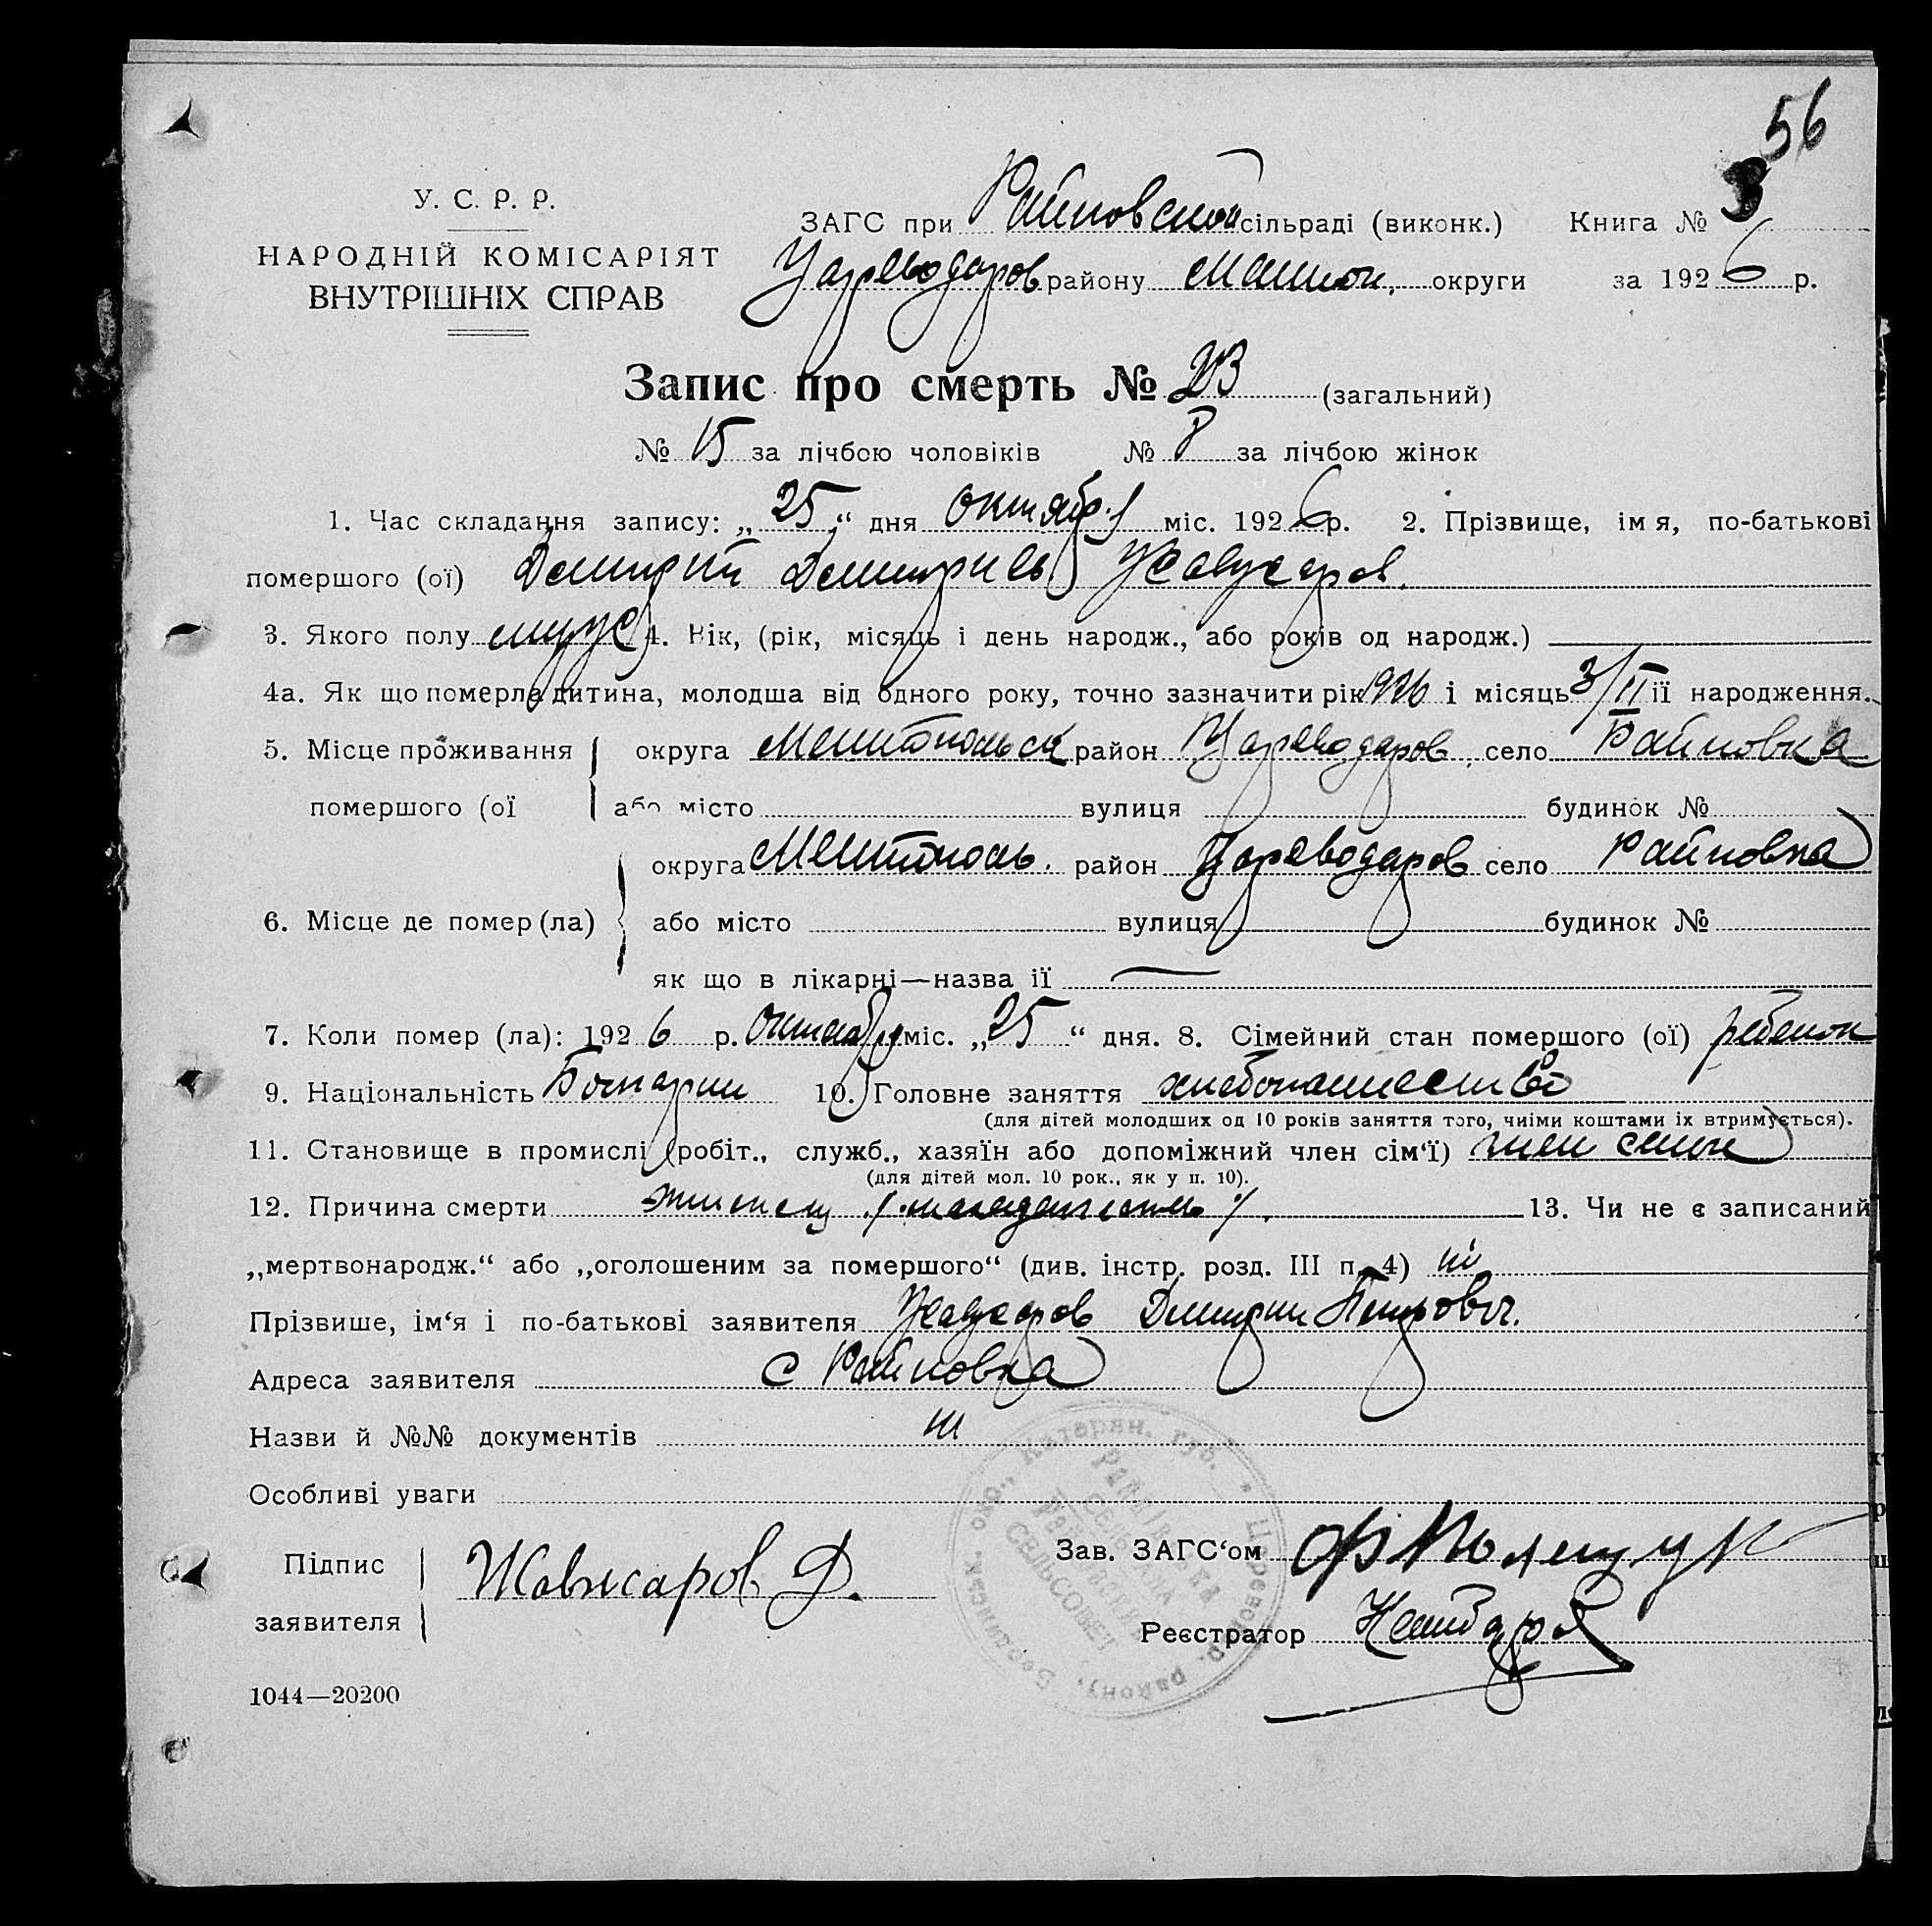 56
У. С. Р. Р.
НАРОДНІЙ КОМІСАРІЯТ
ВНУТРІШНІХ СПРАВ
ЗАГС при Райновской сільраді (виконк.) Книга № 3
Цареводаров району Мелитоп. округи за 1926 р.
Запис про смерть № 23 (загальний)
№ 15 за лічбою чоловіків № 8 за лічбою жінок
1. Час складання запису: „25“ дня октябр. міс. 1926 р. 2. Прізвище, імя, по-батькові
помершого (ої) Дмитрий Дмитриев
3. Якого полу муж 4. Вік, (рік, місяць і день народж., або років од народж.)
4а. Як що померла дитина, молодша від одного року, точно зазначити рік 1926 і місяць 3/II її народження.
5. Місце проживання округа Мелитопольск район Цареводаров село Райновка
помершого (ої або місто вулиця будинок №
округа Мелитополь. район Цареводаров село Райновка
6. Місце де помер (ла) або місто вулиця будинок №
як що в лікарні—назва її —
7. Коли помер (ла): 1926 р. октября міс. „25“ дня. 8. Сімейний стан помершого (ої) ребенок
9. Національність Болгарин 10. Головне заняття хлебопашество
(для дітей молодших од 10 років заняття того, чиїми коштами їх втримується).
11. Становище в промислі (робіт., служб., хазяїн або допоміжний член сім‘ї) член семьи
(для дітей мол. 10 рок., як у п. 10).
12. Причина смерти 13. Чи не є записаний
„мертвонародж.“ або „оголошеним за помершого“ (див. інстр. розд. III п. 4) ні
Прізвише, ім‘я і по-батькові заявителя Дмитрий Петрович.
Адреса заявителя с Райновка
Назви й №№ документів ні
Особливі уваги
Підпис
заявителя Жавжаров Д.
Зав. ЗАГС‘ом
Реєстратор
Бердянськ. окр., Катерин. губ. * Царевокр. району,
СЕЛЬСОВЕТ
1044—20200